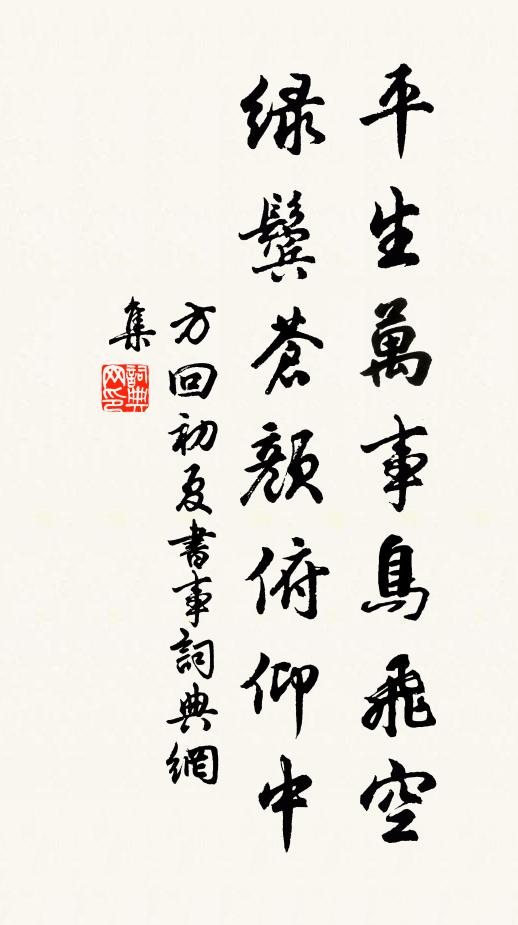 平生萬事鳥飛空
緑鬢蒼顔俯仰中
方回初夏書事詞典網
集
詞典
网印